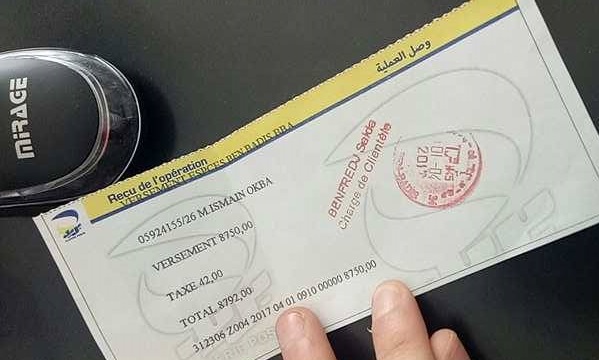 MIRAGE
وصل العملية
Reçu de l'opération
VERSEMENT ESPCES BEN BADIS BBA
05924155/26 M.ISMAIN OKBA
VERSEMENT 8750,00
TAXE 42,00
TOTAL 8792,00
312306 Z004 2017 04 01 0910 00000 8750,00
BENFREDJ Saida
Charge de Clientèle